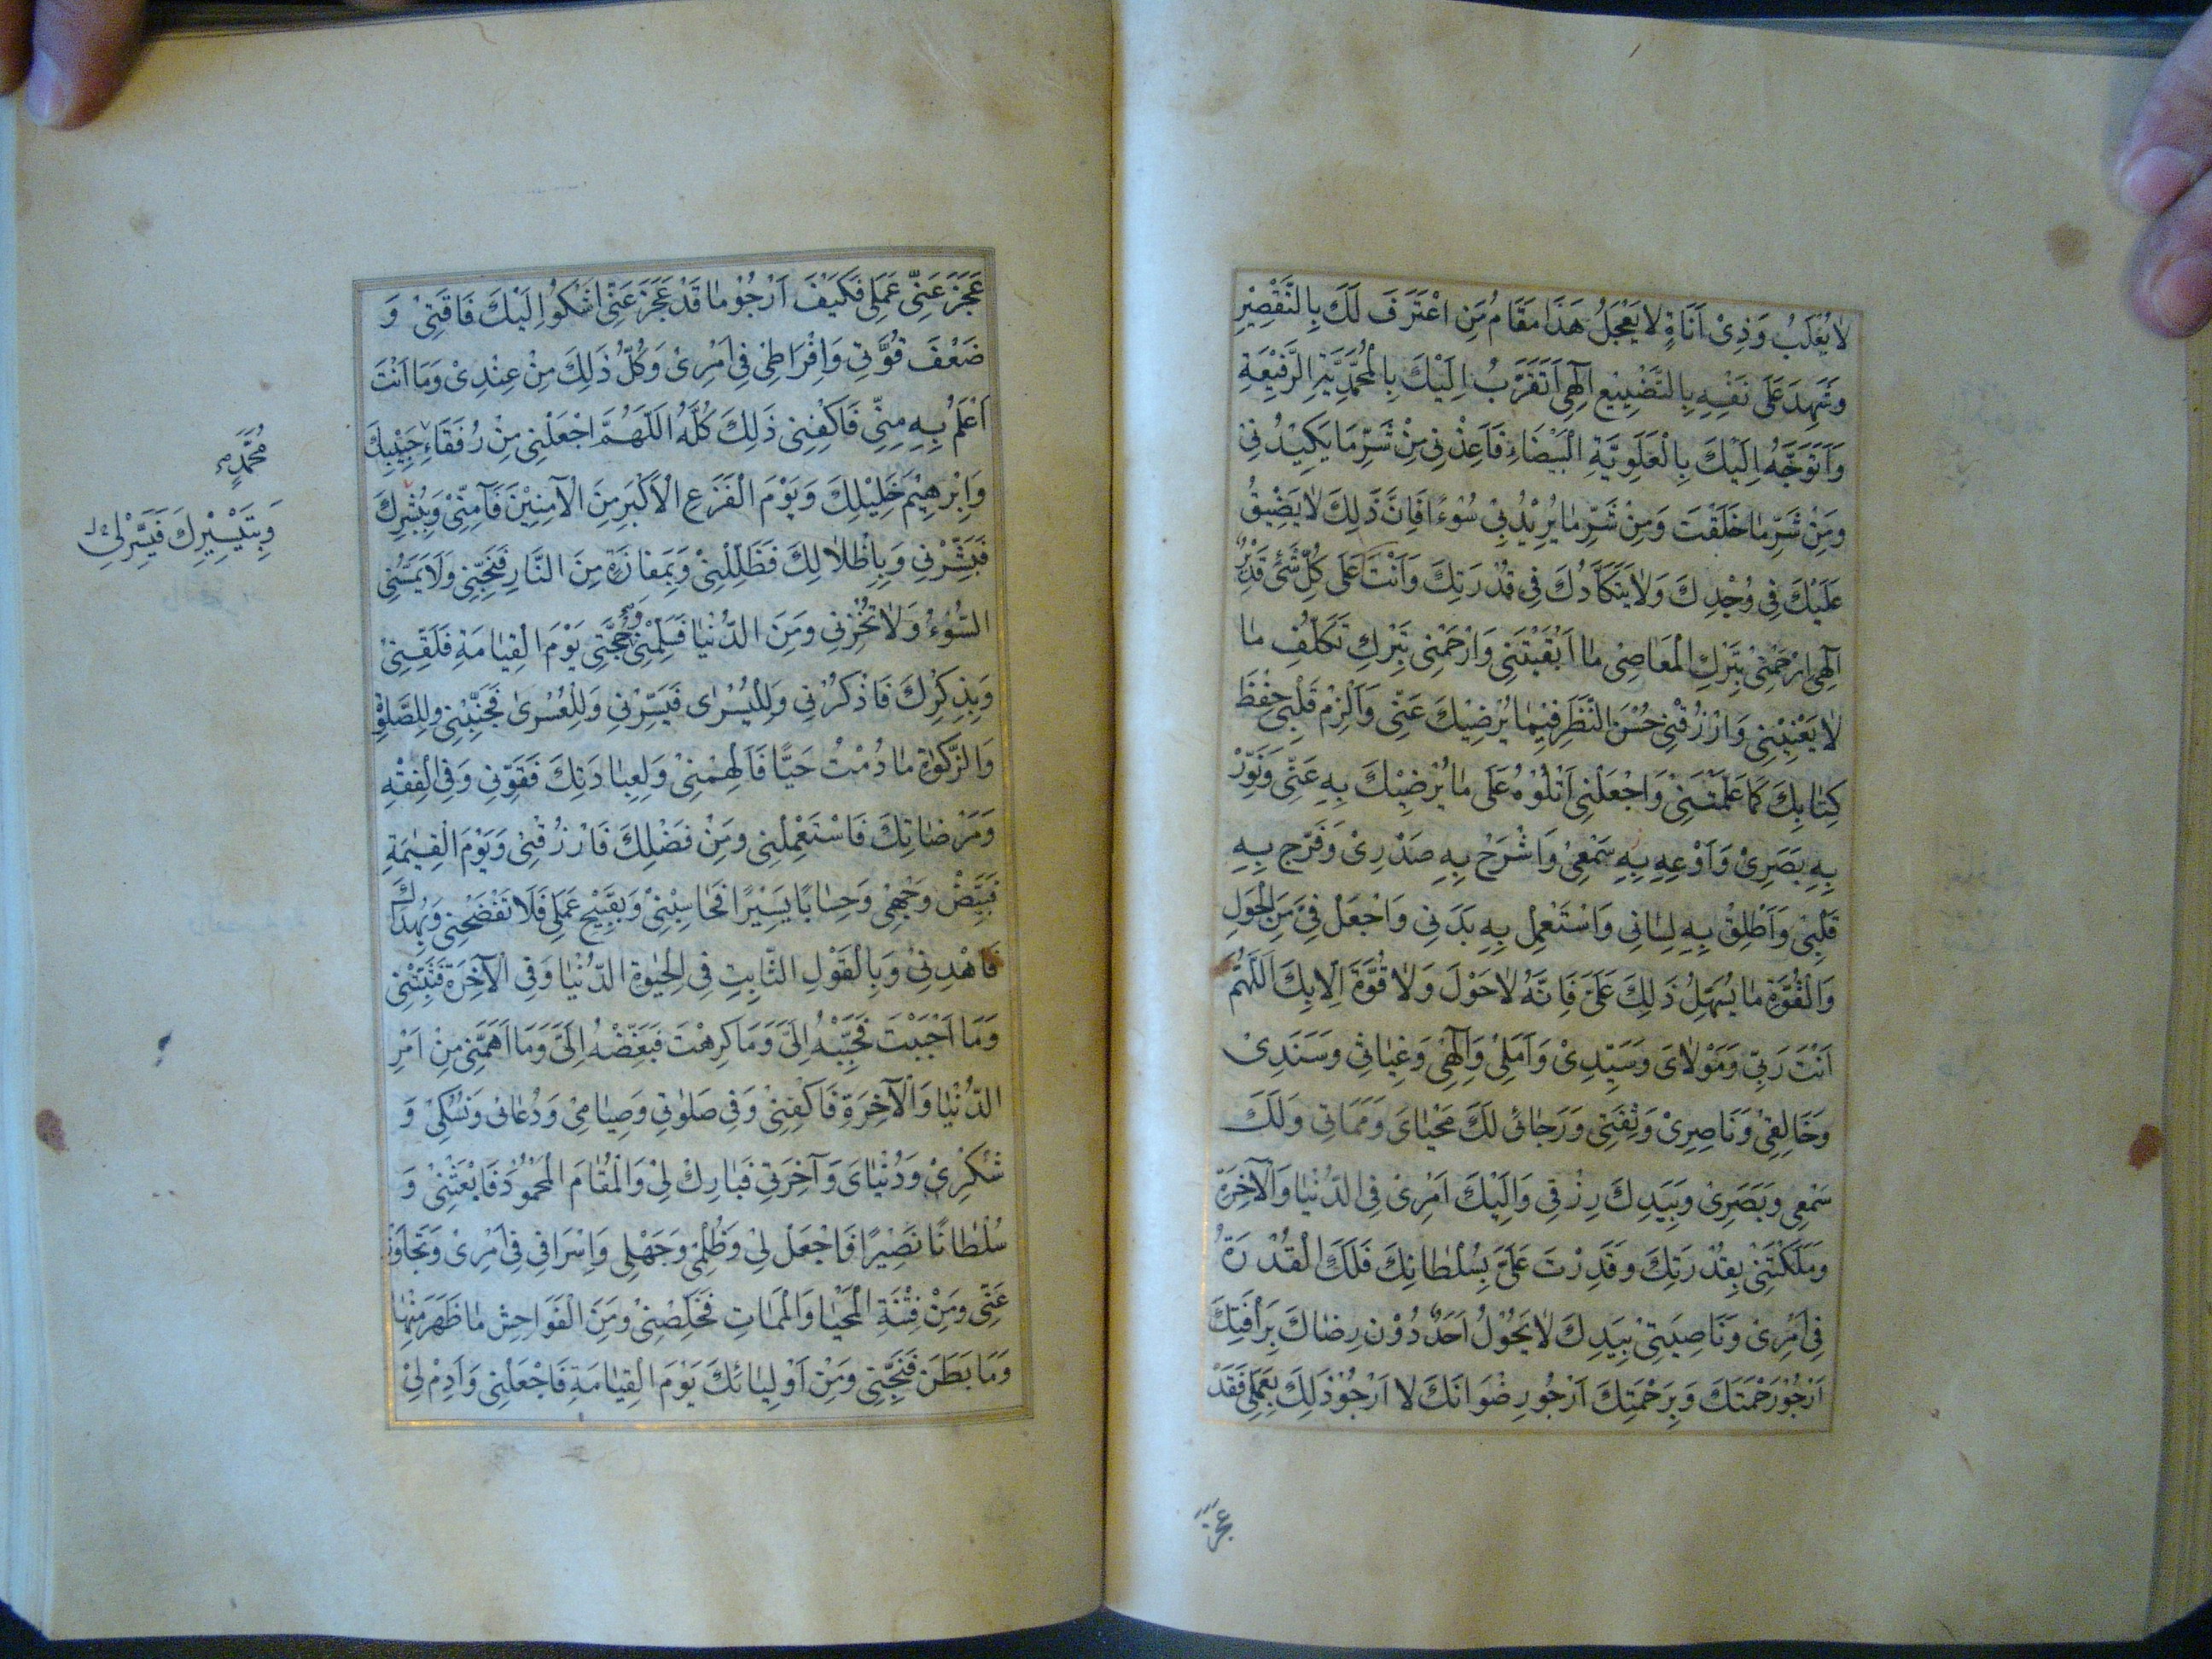 لَا يُغْلَبُ وَذِيْ اَنَاةٍ لَا يَعْجَلُ هَذَا مَقَامُ مَنِ اعْتَرَفَ لَكَ بِالتَّقْصِيْرِ
وَشَهِدَ عَلَى نَفْسِهِ بِالتَّضْيِيْعِ اِلٰهِي اَتَقَرَّبُ اِلَيْكَ بِالْمُحَمَّدِيَّةِ الرَّفِيْعَةِ
وَاَتَوَجَّهُ اِلَيْكَ بِالْعَلَوِيَّةِ الْبَيْضَاءِ فَاَعِذْنِي مِنْ شَرِّ مَا يَكِيْدُنِي
وَمِنْ شَرِّ مَا خَلَقْتَ وَمِنْ شَرِّ مَا يُرِيْدُ بِيْ سُوْءًا فَاِنَّ ذَلِكَ لَا يَضِيْقُ
عَلَيْكَ فِي وُجْدِكَ وَلَا يَتَكَاَّدُكَ فِي قُدْرَتِكَ وَاَنْتَ عَلَى كُلِّ شَئٍ قَدِيْرٌ
اِلٰهِي ارْحَمْنِيْ بِتَرْكِ الْمَعَاصِيْ مَا اَبْقَيْتَنِي وَارْحَمْنِي بِتَرْكِ تَكَلُّفِ مَا
لَا يَعْنِيْنِي وَارْزُقْنِي حُسْنَ النَّظَرِ فِيْمَا يُرْضِيْكَ عَنِّي وَاَلْزِمْ قَلْبِي حِفْظَ
كِتَابِكَ كَمَا عَلَّمْتَنِيْ وَاجْعَلْنِي اَتْلُوْهُ عَلَى مَا يُرْضِيْكَ بِهِ عَنِّي وَنَوِّرْ
بِهِ بَصَرِيْ وَاَوْعِهِ بِهِ سَمْعِيْ وَاشْرَحْ بِهِ صَدْرِيْ وَفَرِّجْ بِهِ
قَلْبِيْ وَاَطْلِقْ بِهِ لِسَانِي وَاسْتَعْمِلْ بِهِ بَدَنِي وَاجْعَلْ فِيَّ مِنَ الْحَوْلِ
وَالْقُوَّةِ مَا يُسَهِّلُ ذَلِكَ عَلَيَّ فَاِنَّهُ لَا حَوْلَ وَلَا قُوَّةَ اِلَّا بِكَ اَللَّهُمَّ
اَنْتَ رَبِّي وَمَوْلَايَ وَسَيِّدِيْ وَاَمَلِيْ وَاِلٰهِيْ وَغِيَاثِي وَسَنَدِيْ
وَخَالِقِيْ وَنَاصِرِيْ وَثِقَتِيْ وَرَجَائِي لَكَ مَحْيَايَ وَمَمَاتِي وَلَكَ
سَمْعِي وَبَصَرِيْ وَبِيَدِكَ رِزْقِي وَاِلَيْكَ اَمْرِيْ فِي الدُّنْيَا وَالْآخِرَةِ
وَمَلَكْتَنِيْ بِقُدْرَتِكَ وَقَدَرْتَ عَلَيَّ بِسُلْطَانِكَ فَلَكَ الْقُدْرَةُ
فِي اَمْرِيْ وَنَاصِيَتِيْ بِيَدِكَ لَا يَحُوْلُ اَحَدٌ دُوْنَ رِضَاكَ بِرَأْفَتِكَ
اَرْجُوْ رَحْمَتَكَ وَبِرَحْمَتِكَ اَرْجُوْ رِضْوَانَكَ لَا اَرْجُوْ ذَلِكَ بِعَمَلِي فَقَدْ
عَجَزَ
عَجَزَ عَنِّي عَمَلِي فَكَيْفَ اَرْجُوْ مَا قَدْ عَجَزَ عَنِّي اَشْكُوْ اِلَيْكَ فَاقَتِيْ وَ
ضَعْفَ قُوَّتِي وَاِفْرَاطِيْ فِي اَمْرِيْ وَكُلُّ ذَلِكَ مِنْ عِنْدِيْ وَمَا اَنْتَ
اَعْلَمُ بِهِ مِنِّي فَاكْفِنِي ذَلِكَ كُلَّهُ اَللَّهُمَّ اجْعَلْنِي مِنْ رُفَقَاءِ حَبِيْبِكَ
مُحَمَّدٍ
وَاِبْرٰهِيْمَ خَلِيْلِكَ وَيَوْمَ الْفَزَعِ الْاَكْبَرِ مِنَ الْآمِنِيْنَ فَآمِنِّيْ وَبِبُشْرِكَ
وَبِتَيْسِيْرِكَ فَيَسِّرْ لِيْ
فَبَشِّرْنِي وَبِاِظْلَالِكَ فَظَلِّلْنِيْ وَبِمَفَازَةٍ مِنَ النَّارِ فَنَجِّنِي وَلَا يَمَسَّنِي
السُّوْءُ وَلَا تُخْزِنِي وَمِنَ الدُّنْيَا فَسَلِّمْنِي وَحُجَّتِي يَوْمَ الْقِيَامَةِ فَلَقِّنِيْ
وَبِذِكْرِكَ فَاذْكُرْنِي وَلِلْيُسْرٰى فَيَسِّرْنِي وَلِلْعُسْرٰى فَجَنِّبْنِي وَلِلصَّلٰوةِ
وَالزَّكٰوةِ مَا دُمْتُ حَيًّا فَاَلْهِمْنِيْ وَلِعِبَادَتِكَ فَقَوِّنِي وَفِي الْفِقْهِ
وَمَرْضَاتِكَ فَاسْتَعْمِلْنِي وَمِنْ فَضْلِكَ فَارْزُقْنِي وَيَوْمَ الْقِيٰمَةِ
فَبَيِّضْ وَجْهِيْ وَحِسَابًا يَسِيْرًا فَحَاسِبْنِيْ وَبِقَبِيْحِ عَمَلِي فَلَا تَفْضَحْنِي وَبِهُدَاكَ
فَاهْدِنِيْ وَبِالْقَوْلِ الثَّابِتِ فِي الْحَيٰوةِ الدُّنْيَا وَفِي الْآخِرَةِ فَثَبِّتْنِي
وَمَا اَحْبَبْتَ فَحَبِّبْهُ اِلَيَّ وَمَا كَرِهْتَ فَبَغِّضْهُ اِلَيَّ وَمَا اَهَمَّنِي مِنْ اَمْرِ
الدُّنْيَا وَالْآخِرَةِ فَاكْفِنِيْ وَفِي صَلٰوتِي وَصِيَامِيْ وَدُعَائِي وَنُسُكِيْ وَ
شُكْرِيْ وَدُنْيَايَ وَآخِرَتِي فَبَارِكْ لِيْ وَالْمَقَامَ الْمَحْمُوْدَ فَابْعَثْنِيْ وَ
سُلْطَانًا نَصِيْرًا فَاجْعَلْ لِيْ وَظُلْمِيْ وَجَهْلِي وَاِسْرَافِي فِي اَمْرِيْ وَتَجَاوَزْ
عَنِّي وَمِنْ فِتْنَةِ الْمَحْيَا وَالْمَمَاتِ فَخَلِّصْنِيْ وَمِنَ الْفَوَاحِشِ مَا ظَهَرَ مِنْهَا
وَمَا بَطَنَ فَنَجِّنِي وَمِنْ اَوْلِيَائِكَ يَوْمَ الْقِيَامَةِ فَاجْعَلْنِي وَاَدِمْ لِيْ